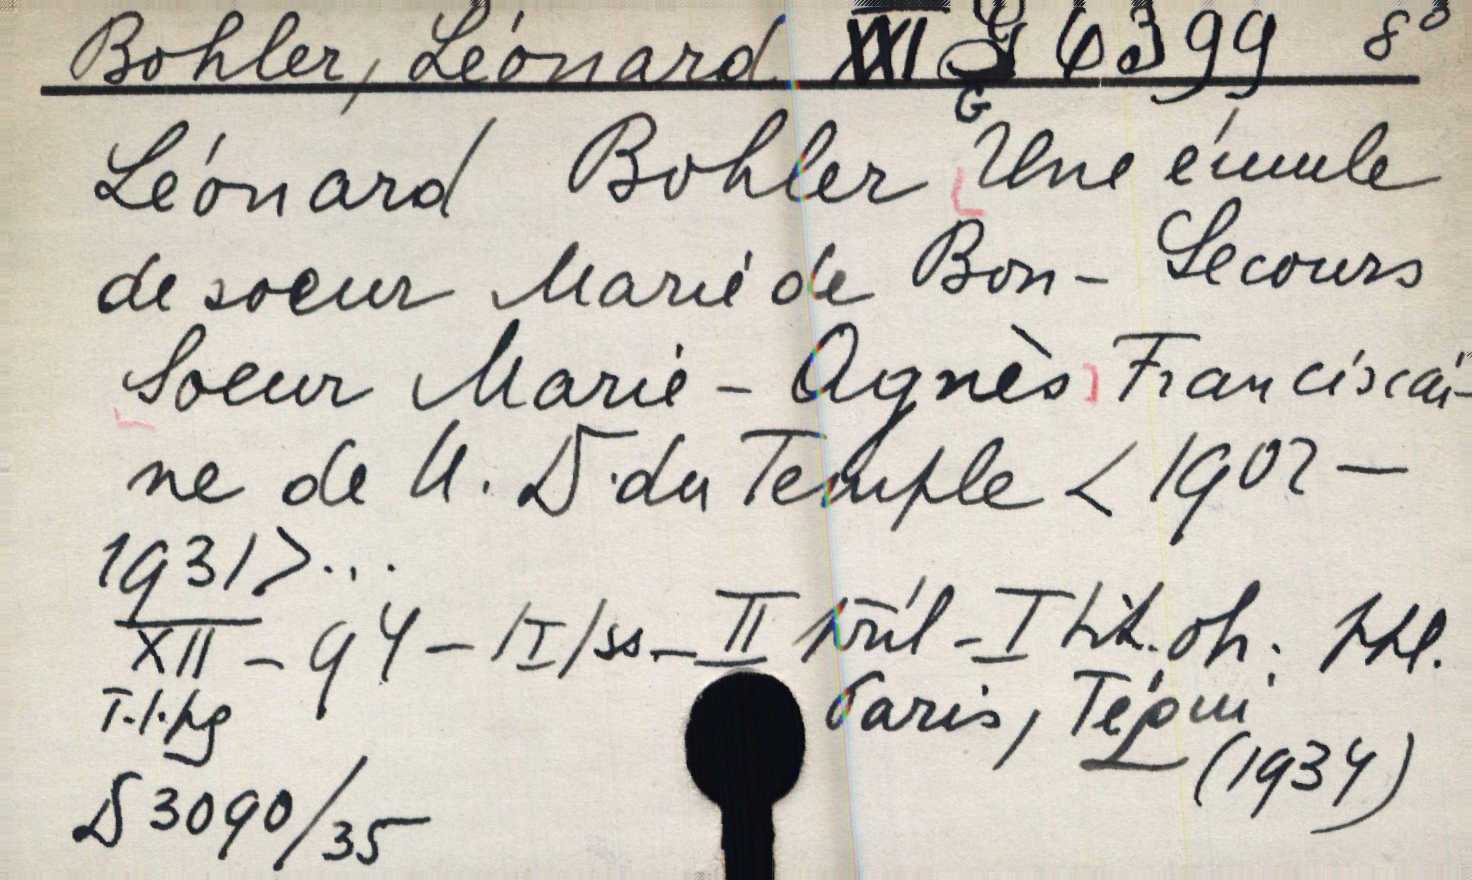 Bohler, Léonard XXI G 6399 8°
G
Léonard Bohler Une émule
de soeur Marie de Bon-Secours
Soeur Marie-Agnès Franciscai-
ne de N. D. du Temple <1902-
1931>...
XII - 94 - |I| ss - II příl - I tit. ob. ppl.
T.l.pg Paris, Téqui
(1934)
D 3090/35